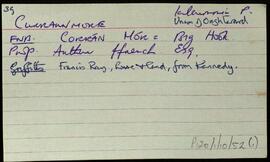 39
CURRAUNMORE
Kilcummin P.
Union D Oughterard
FNB. CORRÁN MÓR = Big Hook
Prop. Arthur ffrench Esq.
Griffiths Francis Ray, house & land, from Kennedy.
P120/1/10/52 (1)